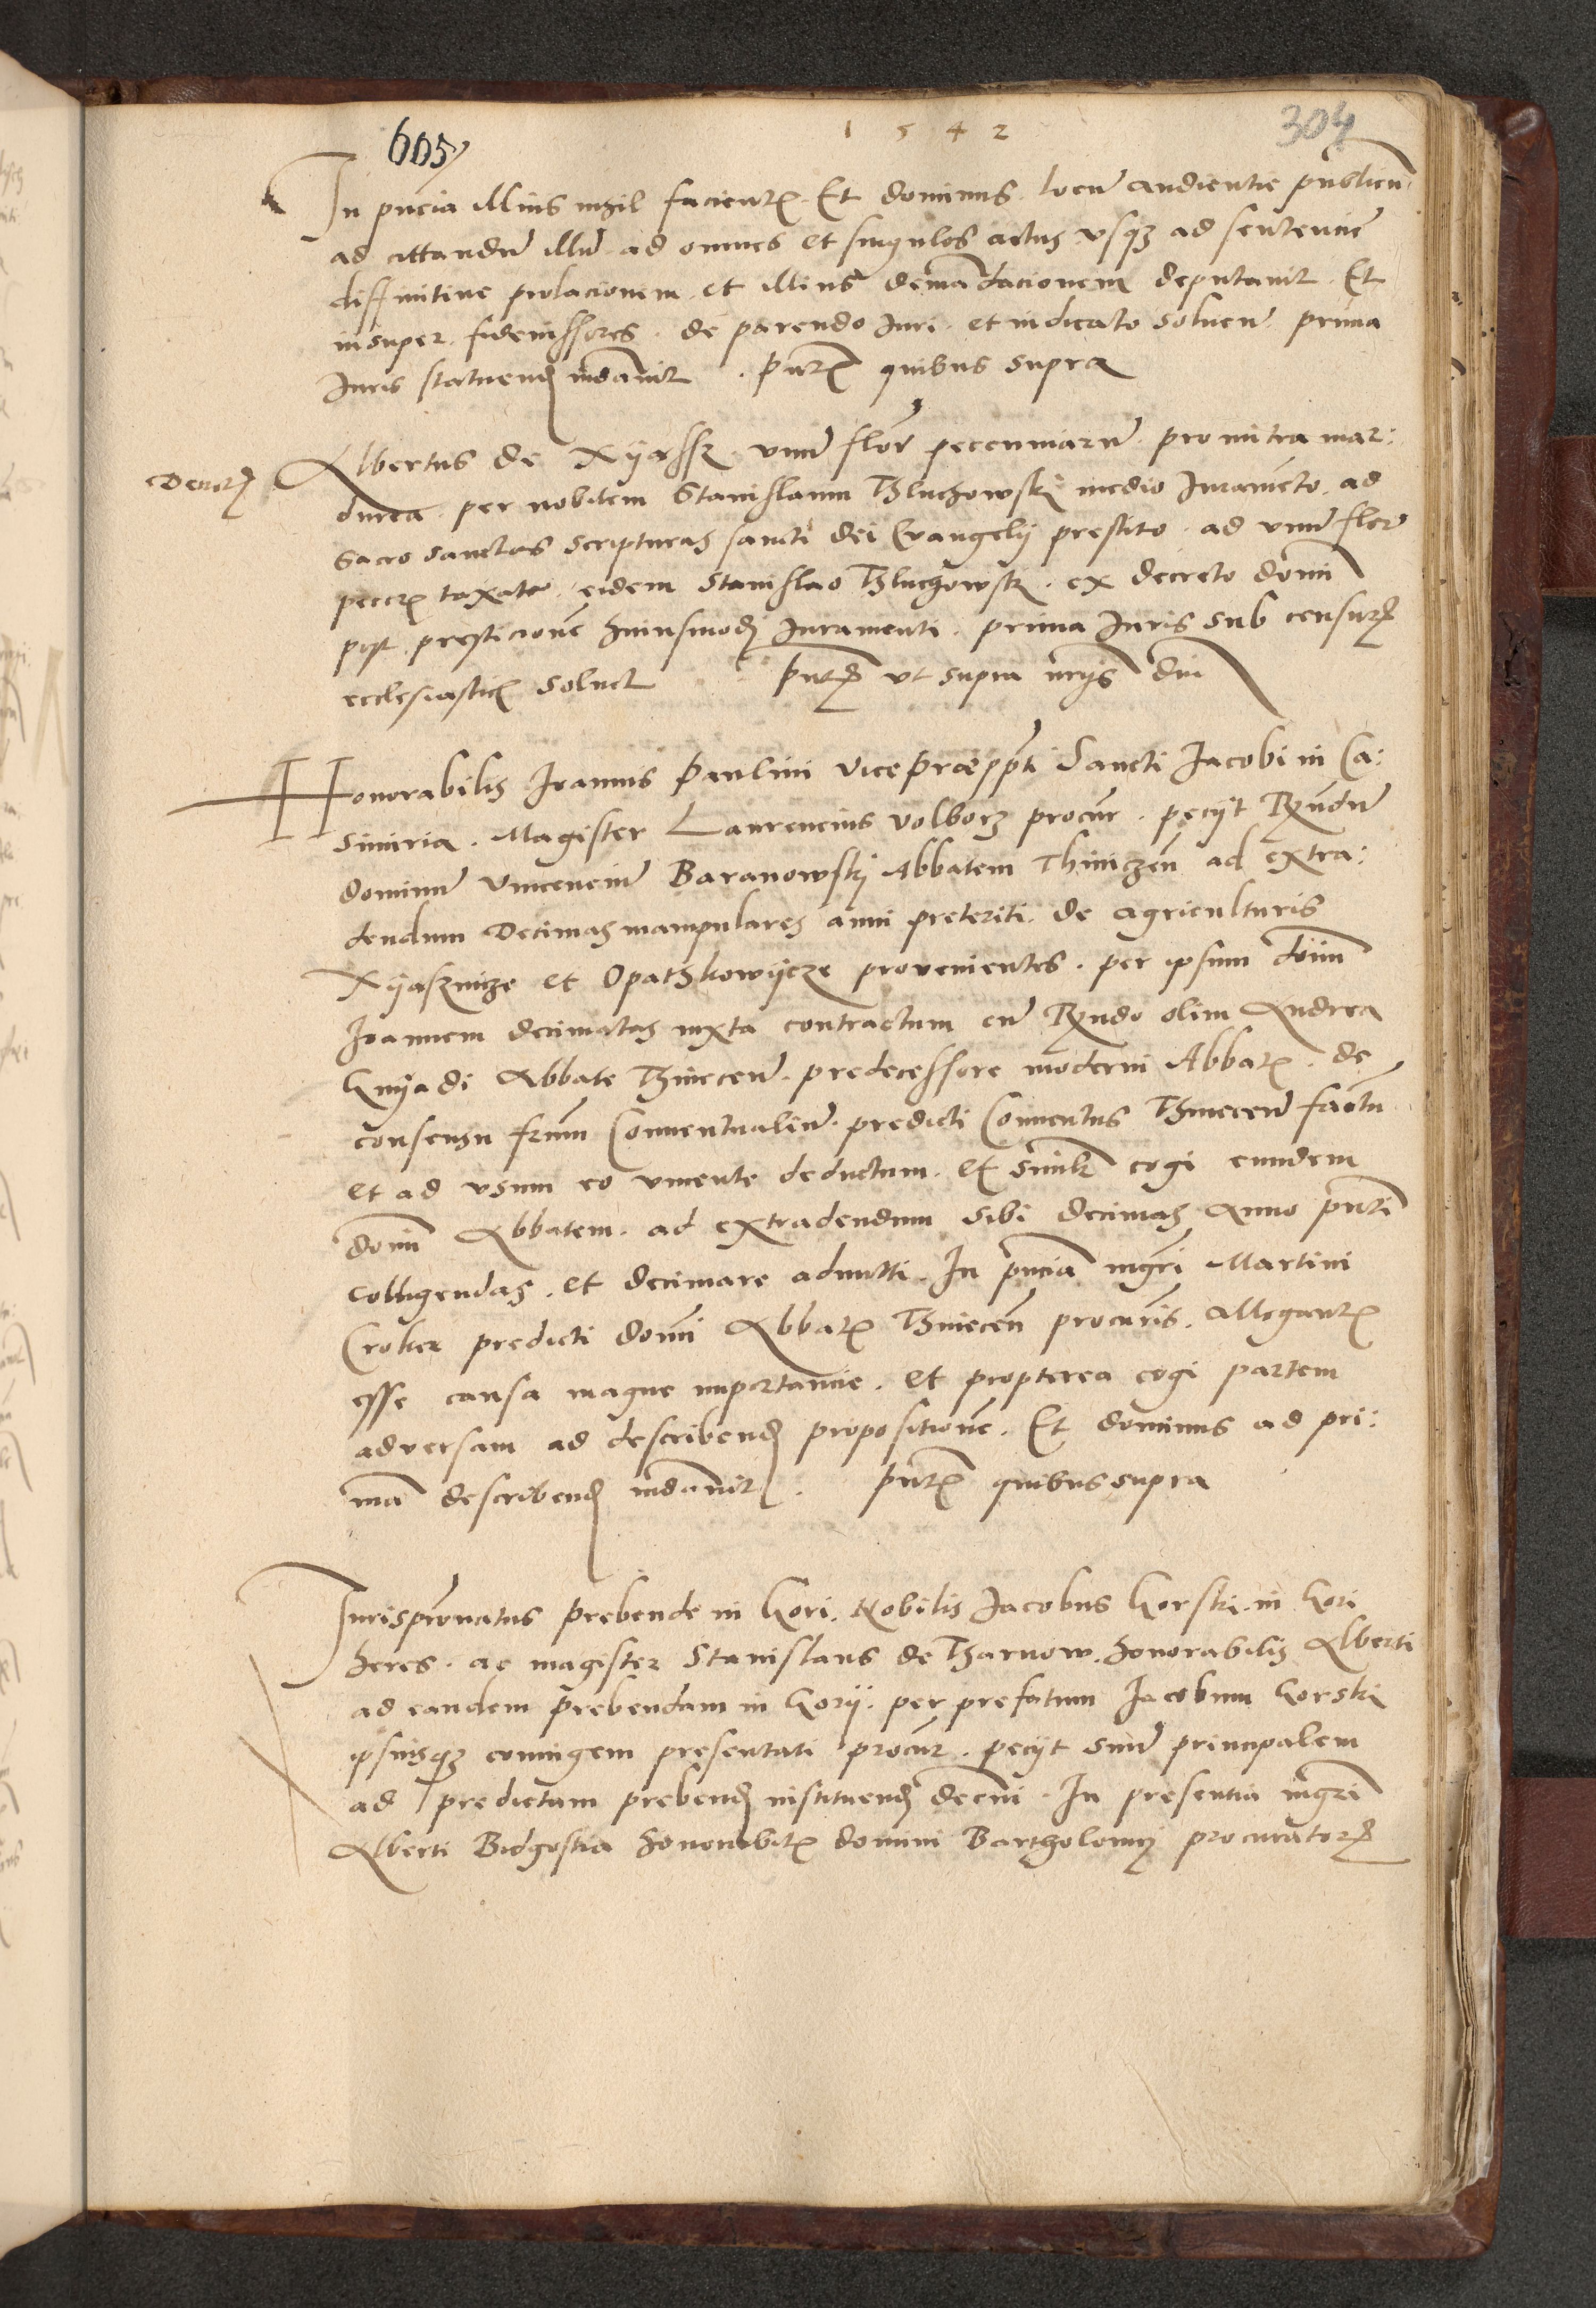 1542
304
605
In pncia illius nihil facientz. Et dominus locum audientie publicum
ad cittandum illum ad omnes et singulos actus usqz ad sententie
diffinitive prolacionem et illius demandacionem deputavit. Et
insuper fideiussores de parendo Iuri et iudicato solvendum prima
Iuris statuend mdavit. Pntz quibus supra
Decretz Albertus de Xyassz unum flor pecuniarum pro mitra mar:
durea per nobilem Stanislaum Thluchowski medio Iuramento ad
Sacro sanctas scripturas sancti dei Evangelij prestito ad unum flor
peccz taxata eidem Stanislao Thluchowsk. ex decreto domi
post presticionem huiusmodi Iuramenti prima Iuris sub censurz
ecclesiasticz solvet Pntz ut supra mrijs dni
Honorabilis Ioannis Paulini vicepraeppti Sancti Jacobi in Ca:
simiria. Magister Laurencius Volborz procur. peciit Rndum
dominum Vincencium Baranowski Abbatem Thiniczen ad extra:
dendum Decimas manipulares anni preteriti de agriculturis
Xyasznicze et Opathkowycze provenientes per ipsum dnm
Joannem decimatas iuxta contractum cum Rndo olim Andrea
Gnyadi Abbate Thinecen. predecessore moderni Abbatz. de
consensu frum Conventualium predicti Conventus Thinecen factum
et ad usum eo vivente deductum. Et simlr cogi eundem
domi Abbatem ad extradendum sibi decimas Anno pnti
colligendas et decimare admitti. In pncia mgri Martini
Croker predicti domi Abbatz Thinecen procuris. Allegantz
esse causa magne importancie et propterea cogi partem
adversam ad describend propositione. Et dominus ad pri:
ma describend mdavit. Pntz quibus supra
Jurispronatus prebende in Gori. Nobilis Jacobus Gorski in Gori
heres ac magister Stanislaus de Tharnow honorabilis Alberti
ad eandem prebendam in Gorij per prefatum Jacobum Gorski
ipsiusqz coniugem presentati procur. peciit suum principalem
ad predictam prebend instituend decrni. In presentia mgri
Alberti Bidgostia honorabilz domini Bartholomei procuratorz